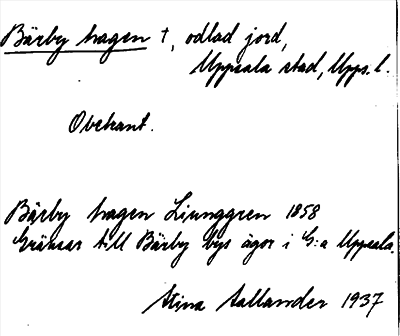 Bärby hagen †, odlad jord,
Uppsala stad, Upps. l.
Obekant.
Bärby hagen Ljunggren 1858
Gränsar till Bärby bys ägor i G:a Uppsala.
Stina Aallander 1937